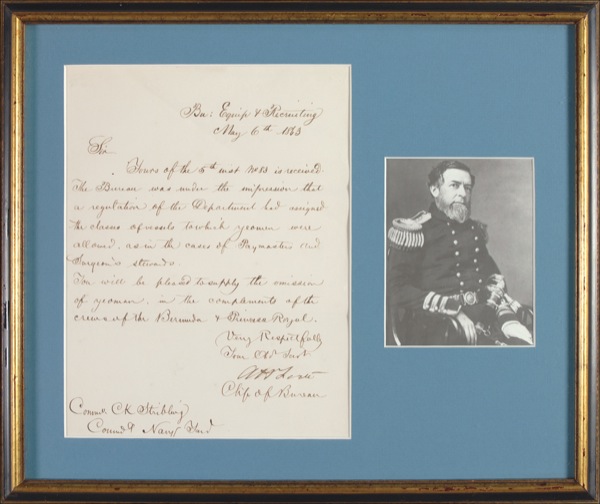 Bu: Equip & Recruiting
May 6th 1863
Sir
Yours of the 5th inst No 83 is received.
The Bureau was under the impression that
a regulation of the Department had assigned
the classes of vessels to which yeomen were
allowed, as in the cases of Paymasters and
Surgeon's stewards.
You will be pleased to supply the omission
of yeoman, in the complements of the
crews of the Bermuda & Princess Royal.
Very Respectfully
Your Obt Svt
Chief of Bureau
Commo. C K Stribling
Comdt Navy Yard